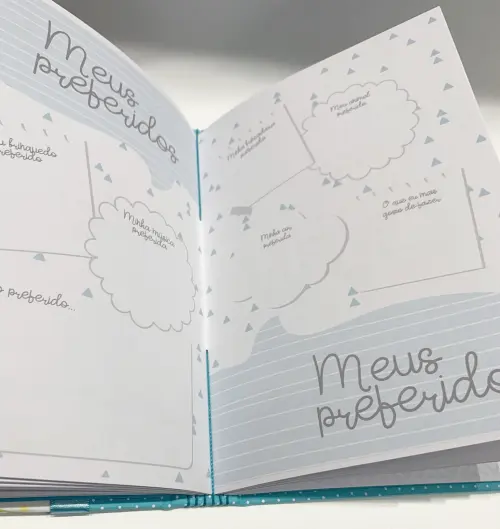 Meus
preferidos
u brinquedo
preferido
Minha música
preferida
o preferido...
Minha brincadeira
preferida
Meu animal
preferido
Minha cor
preferida
O que eu mais
gosto de fazer
Meus
preferidos